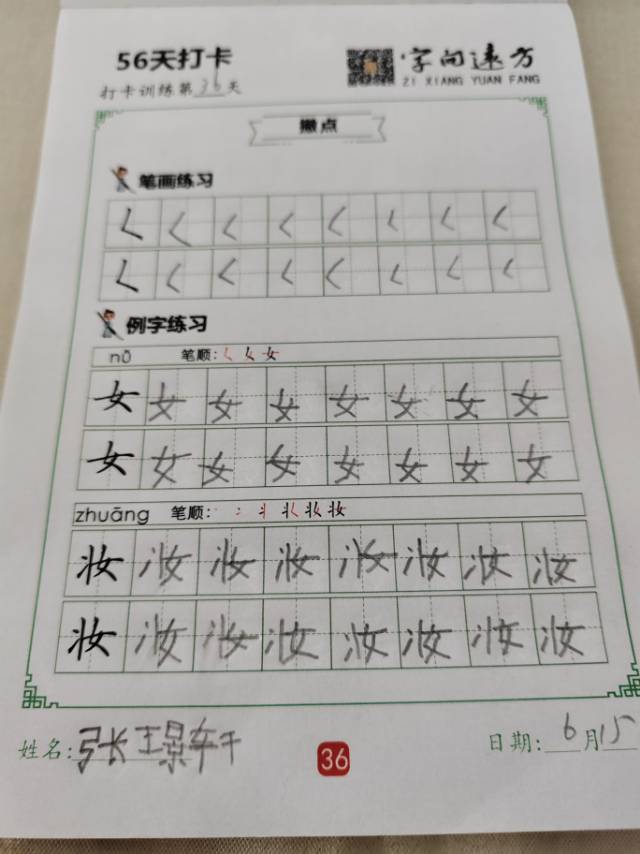 56天打卡
字向远方
打卡训练第36天
ZI XIANG YUAN FANG
撇点
笔画练习
𡿨 𡿨 𡿨 𡿨 𡿨 𡿨 𡿨 𡿨
𡿨 𡿨 𡿨 𡿨 𡿨 𡿨 𡿨 𡿨
例字练习
nǚ 笔顺: 𡿨 女 女
女 女 女 女 女 女 女 女
女 女 女 女 女 女 女 女
zhuāng 笔顺: 丶 冫 丬 妆 妆 妆
妆 妆 妆 妆 妆 妆 妆 妆
妆 妆 妆 妆 妆 妆 妆 妆
姓名: 张璟轩
36
日期: 6月15